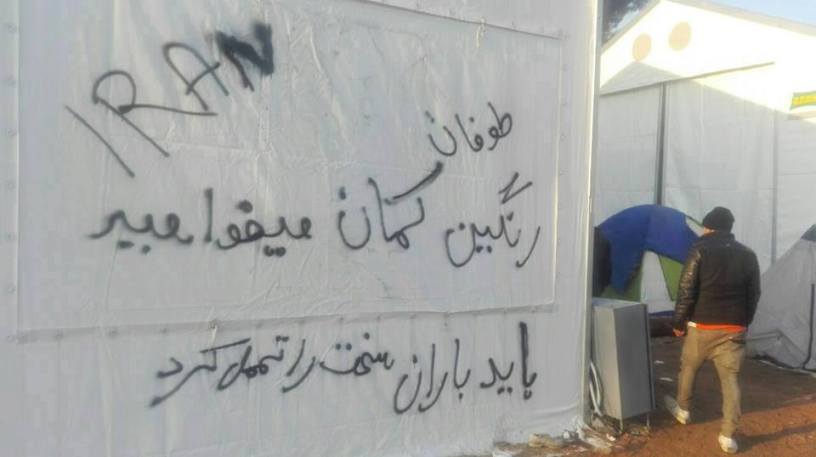 IRAN
طوفان
رنگین کمان میخواهید
باید باران سخت را تحمل کرد